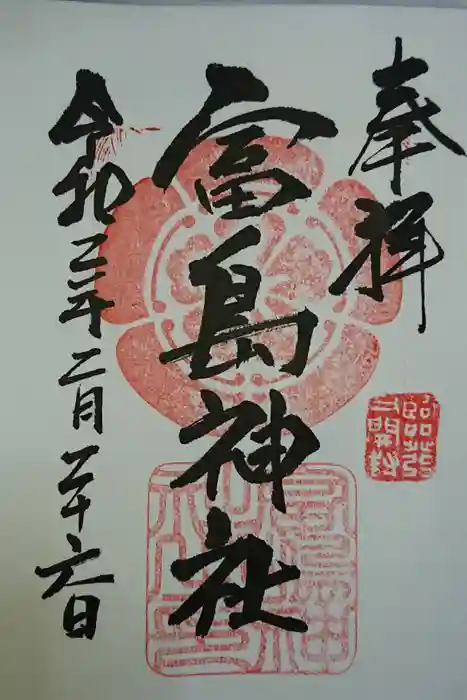 奉拝
富島神社
令和二年二月二十六日